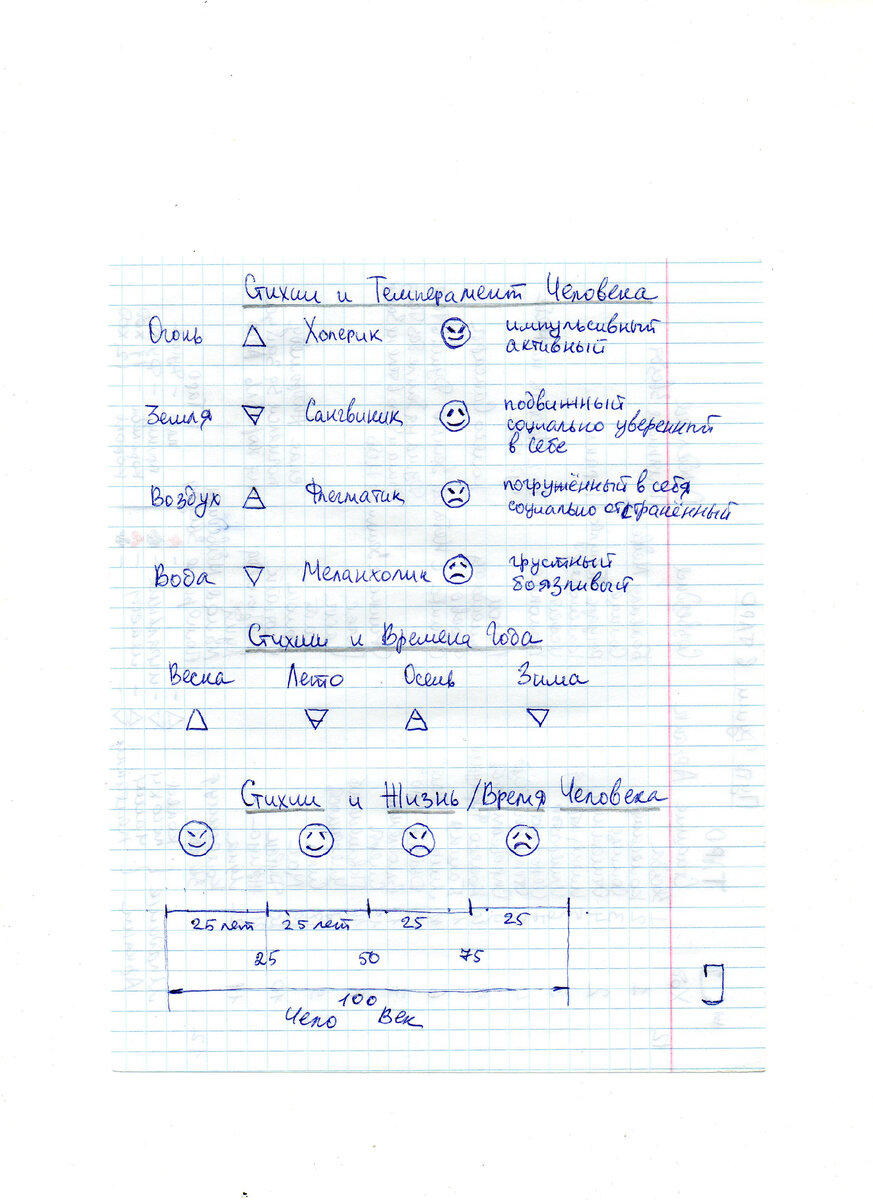 Стихии и Темперамент Человека
Огонь Холерик импульсивный
активный
Земля Сангвиник подвижный
социально уверенный
в себе
Воздух Флегматик погружённый в себя
социально отстранённый
Вода Меланхолик грустный
боязливый
Стихии и Времена Года
Весна Лето Осень Зима
Стихии и Жизнь / Время Человека
25 лет 25 лет 25 25
25 50 75
100
Чело Век